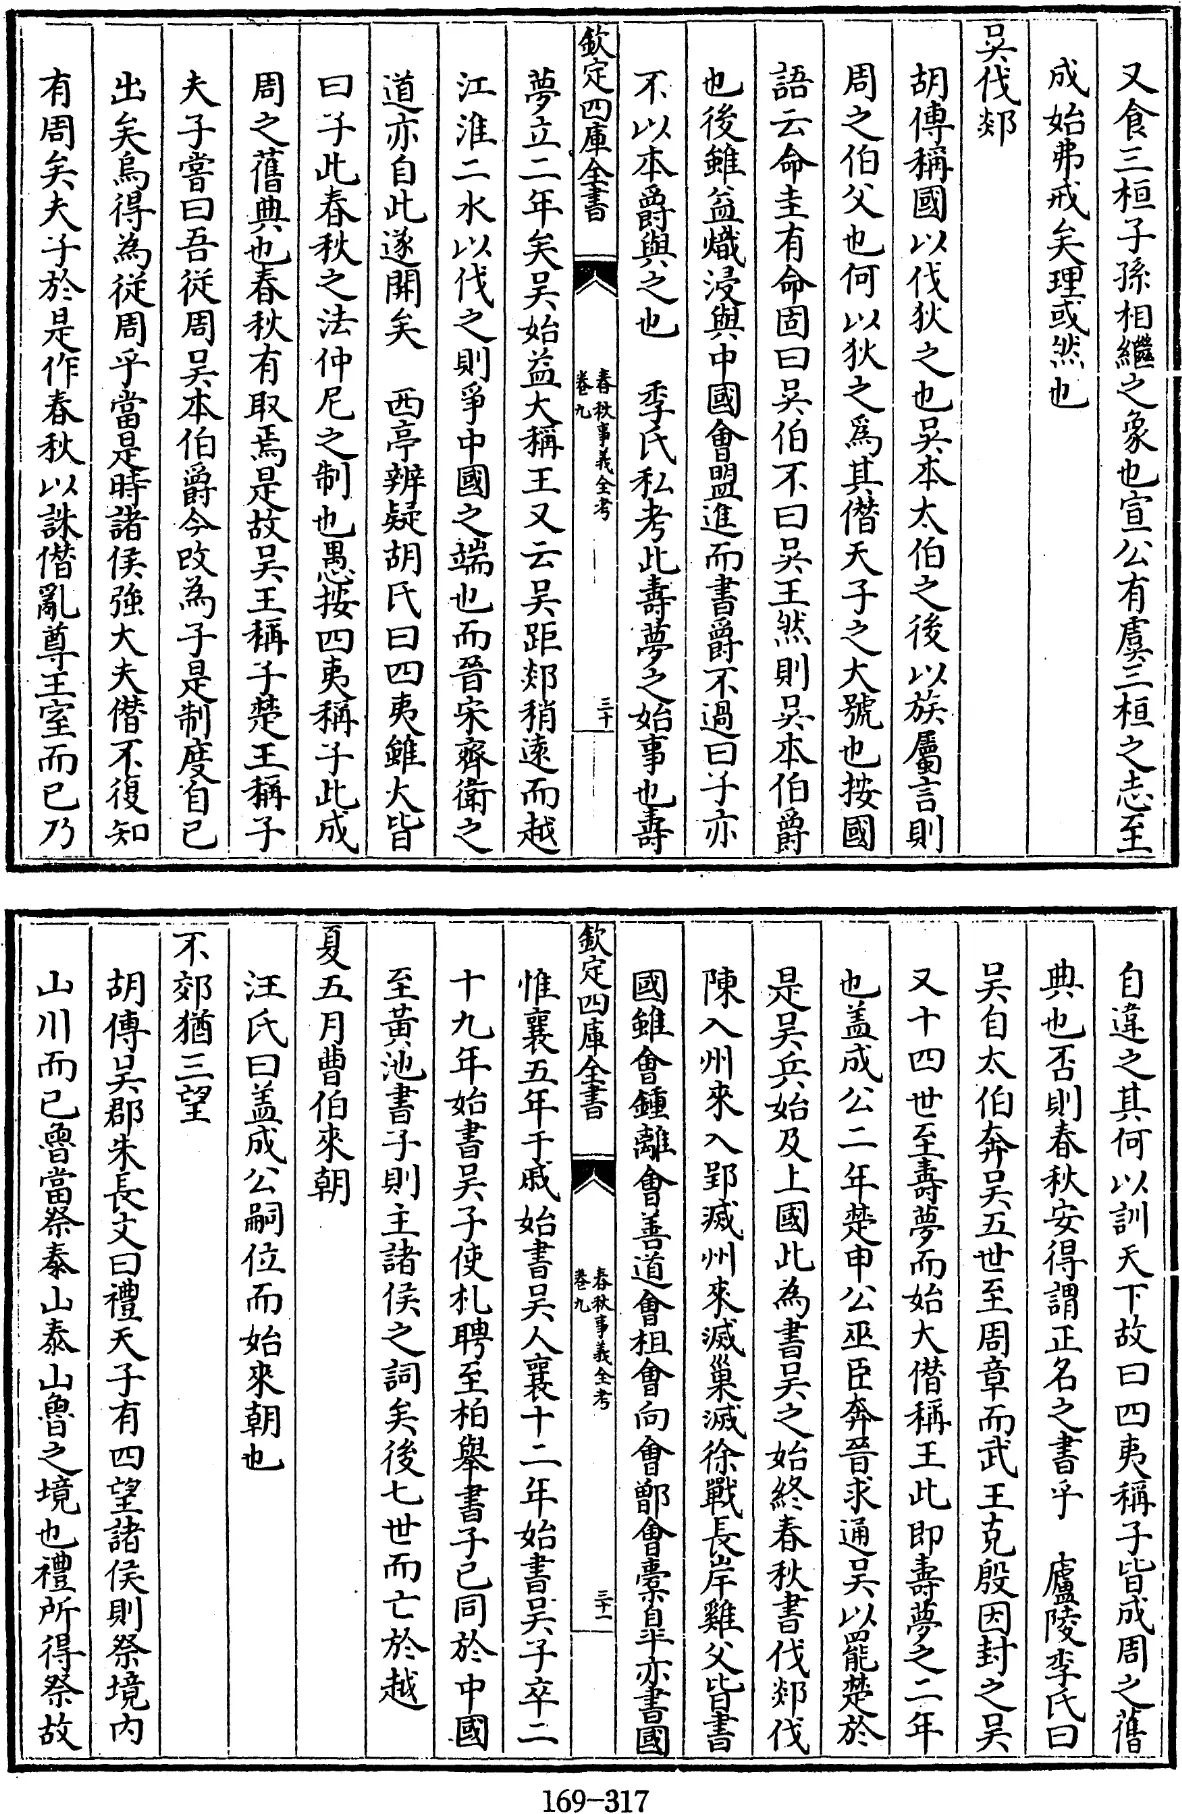 又食三桓子孫相繼之象也宣公有虞三桓之志至
成始弗戒矣理或然也
吳伐郯
胡傳稱國以伐狄之也吳本太伯之後以族屬言則
周之伯父也何以狄之為其僣天子之大號也按國
語云命圭有命固曰吳伯不曰吳王然則吳本伯爵
也後雖益熾浸與中國會盟進而書爵不過曰子亦
不以本爵與之也　季氏私考此壽夢之始事也壽
欽定四庫全書
春秋事義全考
卷九
三十
夢立二年矣吳始益大稱王又云吳距郯稍遠而越
江淮二水以伐之則爭中國之端也而晉宋齊衛之
道亦自此遂開矣　西亭辨疑胡氏曰四夷雖大皆
曰子此春秋之法仲尼之制也愚按四夷稱子此成
周之舊典也春秋有取焉是故吳王稱子楚王稱子
夫子嘗曰吾從周吳本伯爵今改為子是制度自己
出矣烏得為從周乎當是時諸侯強大夫僣不復知
有周矣夫子於是作春秋以誅僣亂尊王室而已乃
自違之其何以訓天下故曰四夷稱子皆成周之舊
典也否則春秋安得謂正名之書乎　廬陵李氏曰
吳自太伯奔吳五世至周章而武王克殷因封之吳
又十四世至壽夢而始大僣稱王此即壽夢之二年
也盖成公二年楚申公巫臣奔晉求通吳以罷楚於
是吳兵始及上國此為書吳之始終春秋書伐郯伐
陳入州來入郢滅州來滅巢滅徐戰長岸雞父皆書
國雖會鍾離會善道會柤會向會鄫會橐臯亦書國
欽定四庫全書
春秋事義全考
卷九
三十一
惟襄五年于戚始書吳人襄十二年始書吳子卒二
十九年始書吳子使札聘至柏舉書子已同於中國
至黃池書子則主諸侯之詞矣後七世而亡於越
夏五月曹伯來朝
汪氏曰盖成公嗣位而始來朝也
不郊猶三望
胡傳吳郡朱長文曰禮天子有四望諸侯則祭境內
山川而已魯當祭泰山泰山魯之境也禮所得祭故
169-317